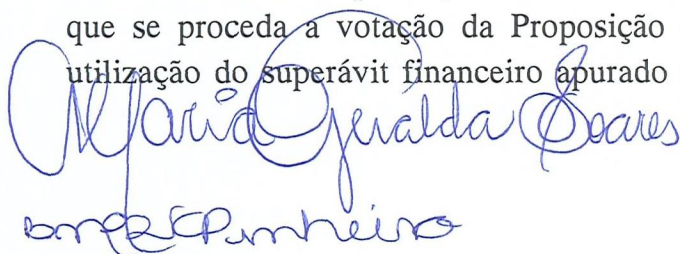 que se proceda a votação da Proposição
utilização do superávit financeiro apurado
Maria Geralda Soares
Pinheiro